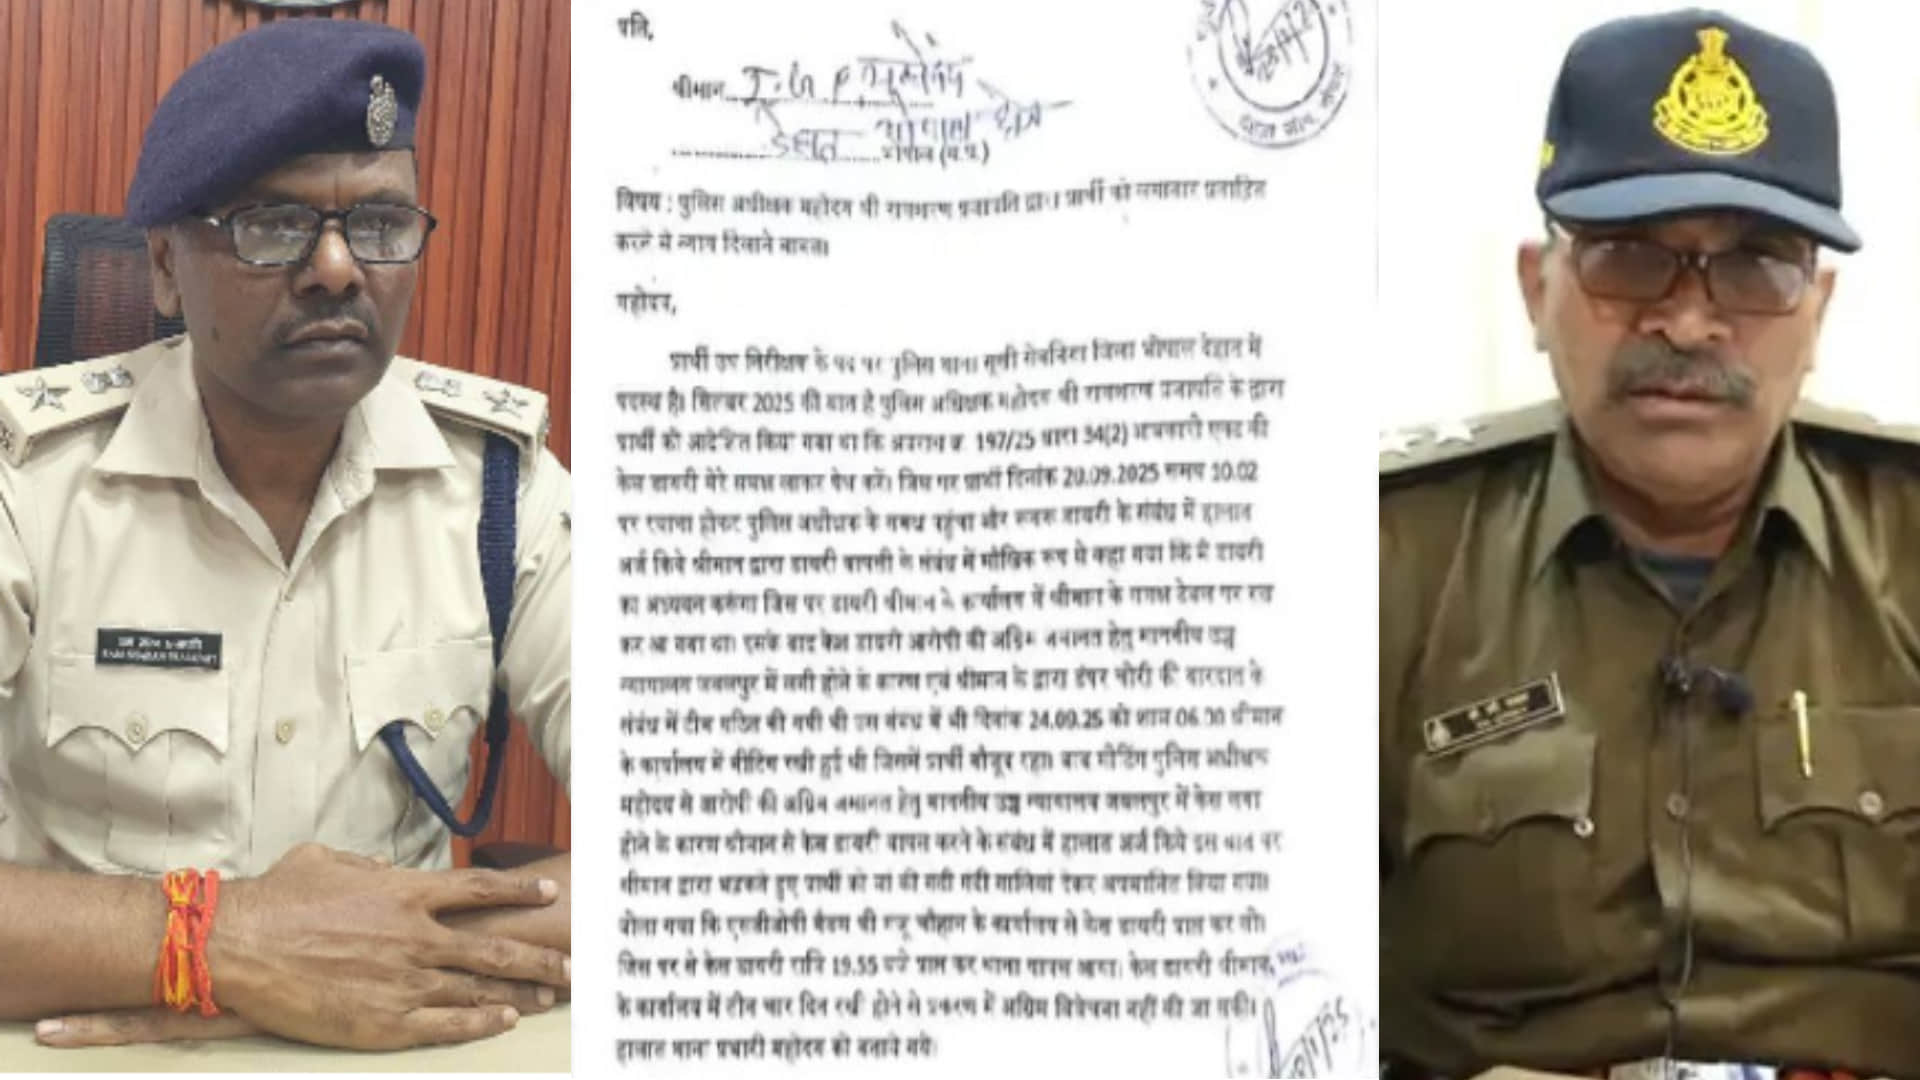 प्रति,
श्रीमान
भोपाल (म.प्र.)
विषय : पुलिस अधीक्षक महोदय श्री रामशरण प्रजापति द्वारा प्रार्थी को लगातार प्रताड़ित
करने से न्याय दिलाने बावत।
महोदय,
प्रार्थी उप निरीक्षक के पद पर पुलिस थाना सूखी सेवनिया जिला भोपाल देहात में
पदस्थ है। सितम्बर 2025 की बात है पुलिस अधिक्षक महोदय श्री रामशरण प्रजापति के द्वारा
प्रार्थी को आदेशित किया गया था कि अपराध क्र. 197/25 धारा 34(2) आबकारी एक्ट की
केस डायरी मेरे समक्ष लाकर पेश करें। जिस पर प्रार्थी दिनांक 20.09.2025 समय 10.02
पर रवाना होकर पुलिस अधीक्षक के समक्ष पहुंचा और डायरी के संबंध में हालात
अर्ज किये श्रीमान द्वारा डायरी वापसी के संबंध में मौखिक रूप से कहा गया कि मैं डायरी
का अध्ययन करूंगा जिस पर डायरी श्रीमान के कार्यालय में श्रीमान के समक्ष टेबल पर रख
कर आ गया था। इसके बाद केस डायरी आरोपी की अग्रिम जमानत हेतु माननीय उच्च
न्यायालय जबलपुर में लगी होने के कारण एवं श्रीमान के द्वारा डंपर चोरी की वारदात के
संबंध में टीम गठित की गयी थी उस संबंध में भी दिनांक 24.09.25 को शाम 06.30 श्रीमान
के कार्यालय में मीटिंग रखी हुई थी जिसमें प्रार्थी मौजूद रहा। बाद मीटिंग पुलिस अधीक्षक
महोदय से आरोपी की अग्रिम जमानत हेतु माननीय उच्च न्यायालय जबलपुर में केस लगा
होने के कारण श्रीमान से केस डायरी वापस करने के संबंध में हालात अर्ज किये इस बात पर
श्रीमान द्वारा भडकते हुए प्रार्थी को मां की गंदी गंदी गालियां देकर अपमानित किया गया।
बोला गया कि एसडीओपी मैडम श्री मंजू चौहान के कार्यालय से केस डायरी प्राप्त कर लो।
जिस पर से केस डायरी रात्रि 19.55 बजे प्राप्त कर थाना वापस आया। केस डायरी श्रीमान
के कार्यालय में तीन चार दिन रखी होने से प्रकरण में अग्रिम विवेचना नहीं की जा सकी।
हालात थाना प्रभारी महोदय को बताये गये।